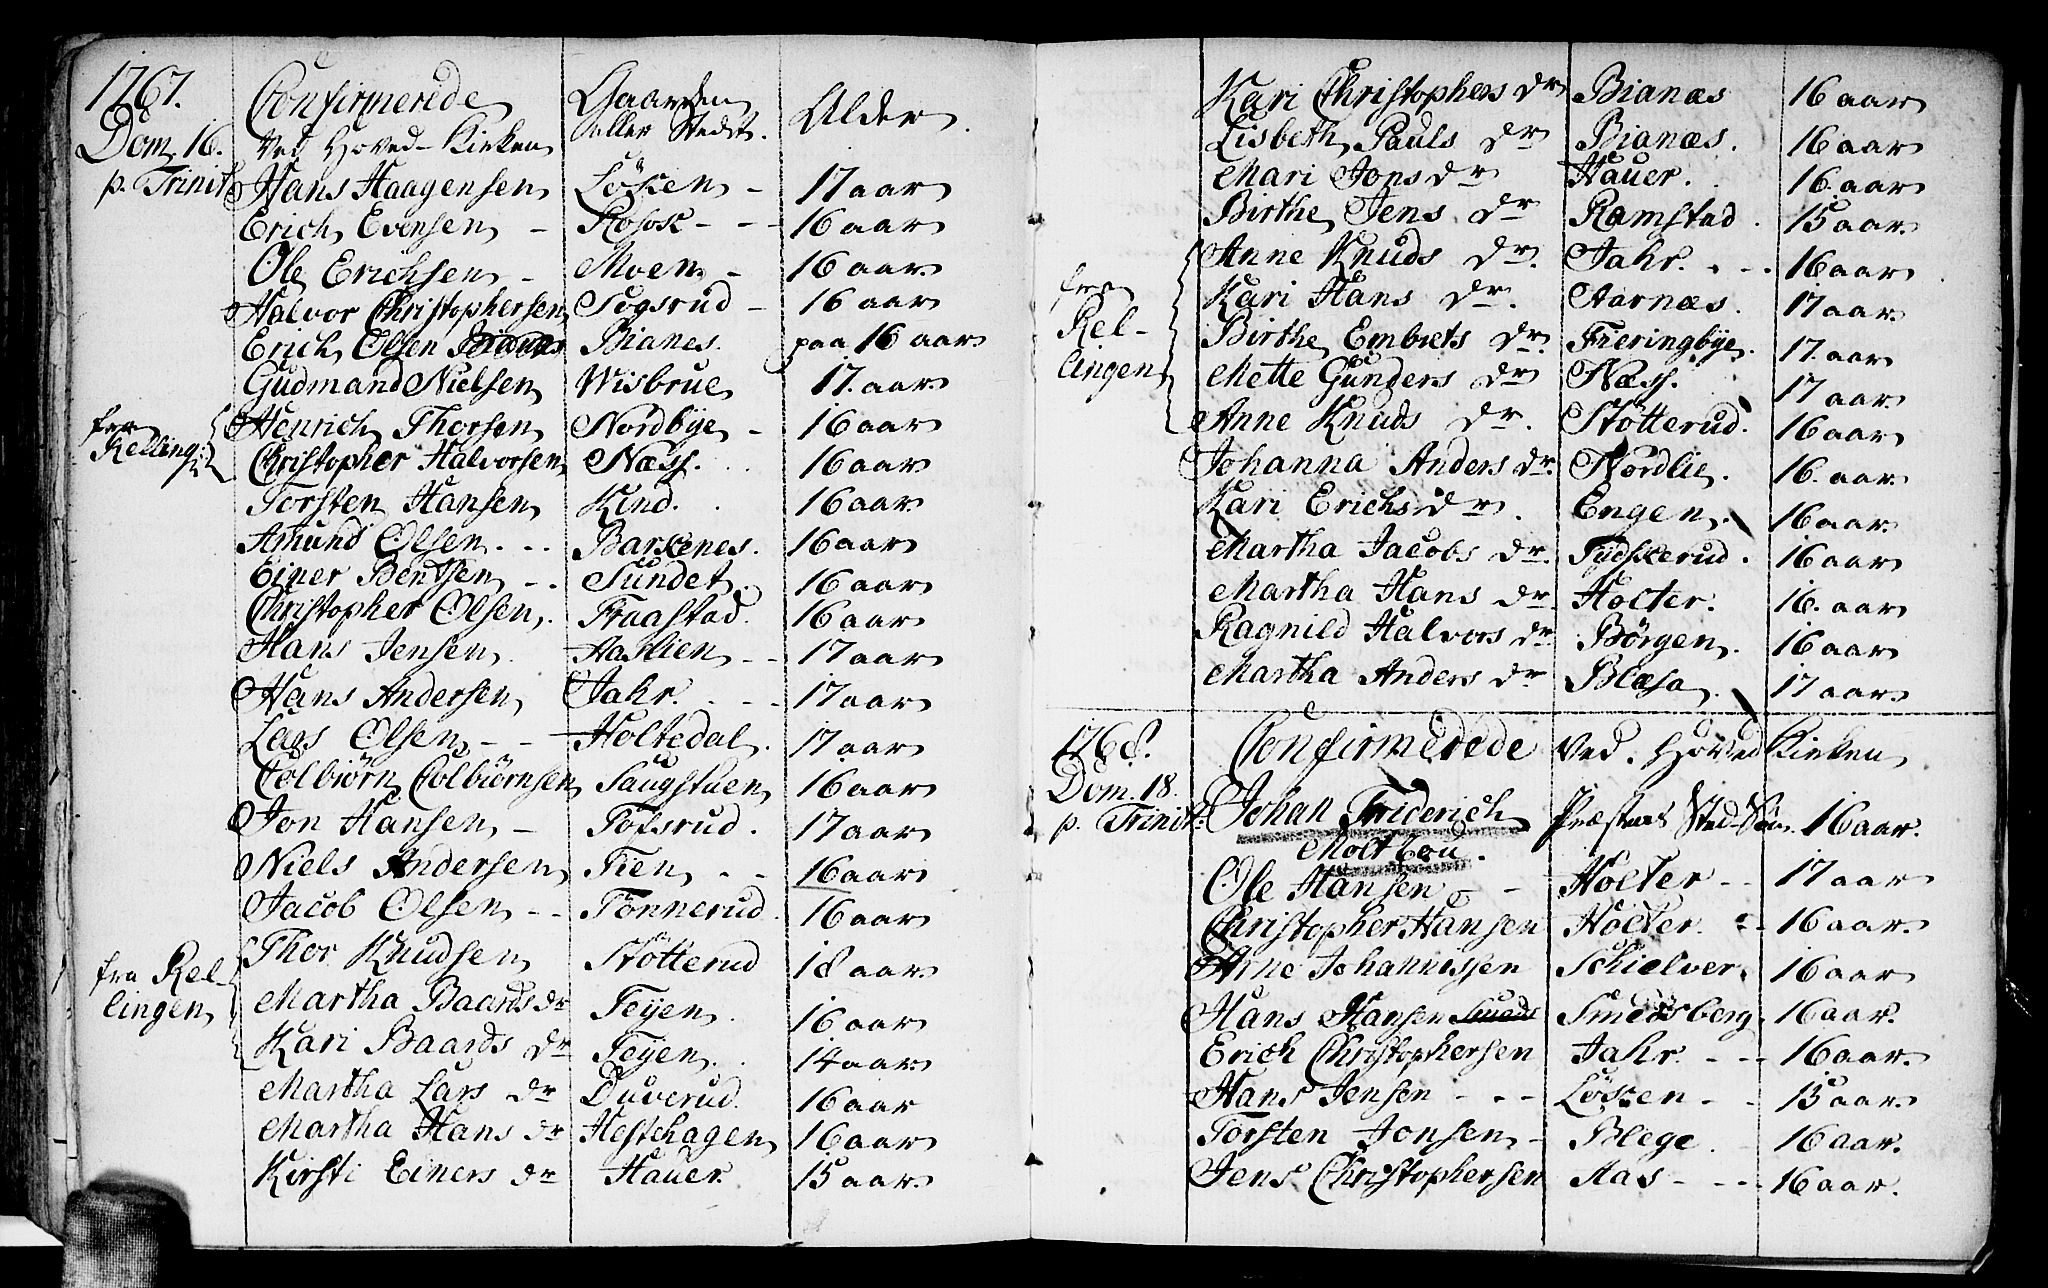 1767.
Dom. 16.
p. Trinit.
Confirmerede Gaarden Alder.
Ved Hoved-Kirken eller Stedet.
Hans Haagensen Löken - 17 aar
Erich Evensen - Kosok - - - 16 aar
Ole Erichsen - Moen - 16 aar
Halvor Christophersen Togsrud - 16 aar
Erich Olsen Bianes. paa 16 aar
Gudmand Nielsen Wisbrue 17. aar
fra Relling:
Henrich Thorsen Nordbÿe - 16 aar
Christopher Halvorsen Næss. 16 aar
Torsten Hansen Kind. 16 aar
Amund Olsen - - - Barkenes. 16 aar
Einer Bentsen - - Sundet. 16 aar
Christopher Olsen. Fraastad. 16 aar
Hans Jensen Aaslien - - 17 aar
Hans Andersen Jahr. - - - 17 aar
Lars Olsen - - Holtedal. 17 aar
Colbiörn Colbiörnsen Saugstuen 16 aar
Jon Hansen - Tofsrud. 17 aar
Niels Andersen Tien - - 16 aar
Jacob Olsen - - Tonnerud. 16 aar
fra Rel-
lingen
Thor Knudsen Stötterud 18 aar
Martha Baards dr Teÿen. 16 aar
Kari Baards dr Teÿen. 14 aar
Martha Lars dr Duverud. 16 aar
Martha Hans dr Hestehagen 16 aar
Kirsti Einers dr Hauer. 15 aar
Kari Christophers dr Bianæs 16 aar
Lisbeth Pauls dr Bianæs. 16 aar
Mari Jons dr Hauer. 16. aar
Birthe Jens dr Ramstad. 15 aar.
fra
Rel-
lingen
Anne Knuds dr. Jahr. - - - 16 aar
Kari Hans dr. Aarnæs. 17 aar.
Birthe Embrets dr. Fieringbÿe. 17. aar
Mette Gunders dr Næss. 17 aar
Anne Knuds dr. Stötterud. 16 aar
Johanna Anders dr. Nordlie. 16. aar
Kari Erichs dr. Engen. 16 aar
Martha Jacobs dr. Tÿdskerud. 16 aar
Martha Hans dr Holter. 16. aar
Ragnild Halvors dr. Börgen. 16 aar
Martha Anders dr Blæsa. 17 aar
1768.
Dom. 18.
p. Trinit:
Confirmerede Ved. Hoved Kirken
Johan Friderich Præstens Sted-Sön. 16 aar.
Moltzou.
Ole Hansen - - Holter - - 17 aar
Christopher Hansen Holter. - - 16 aar.
Arne Johannissen Schielver. 16 aar
Hans Hansen Smedsberg 16 aar.
Erich Christophersen Jahr. - - - 16 aar.
Hans Jensen - - - Löken - - 15 aar.
Torsten Jonsen - Blege. 16 aar.
Jens Christophersen Aas - - - 16 aar.